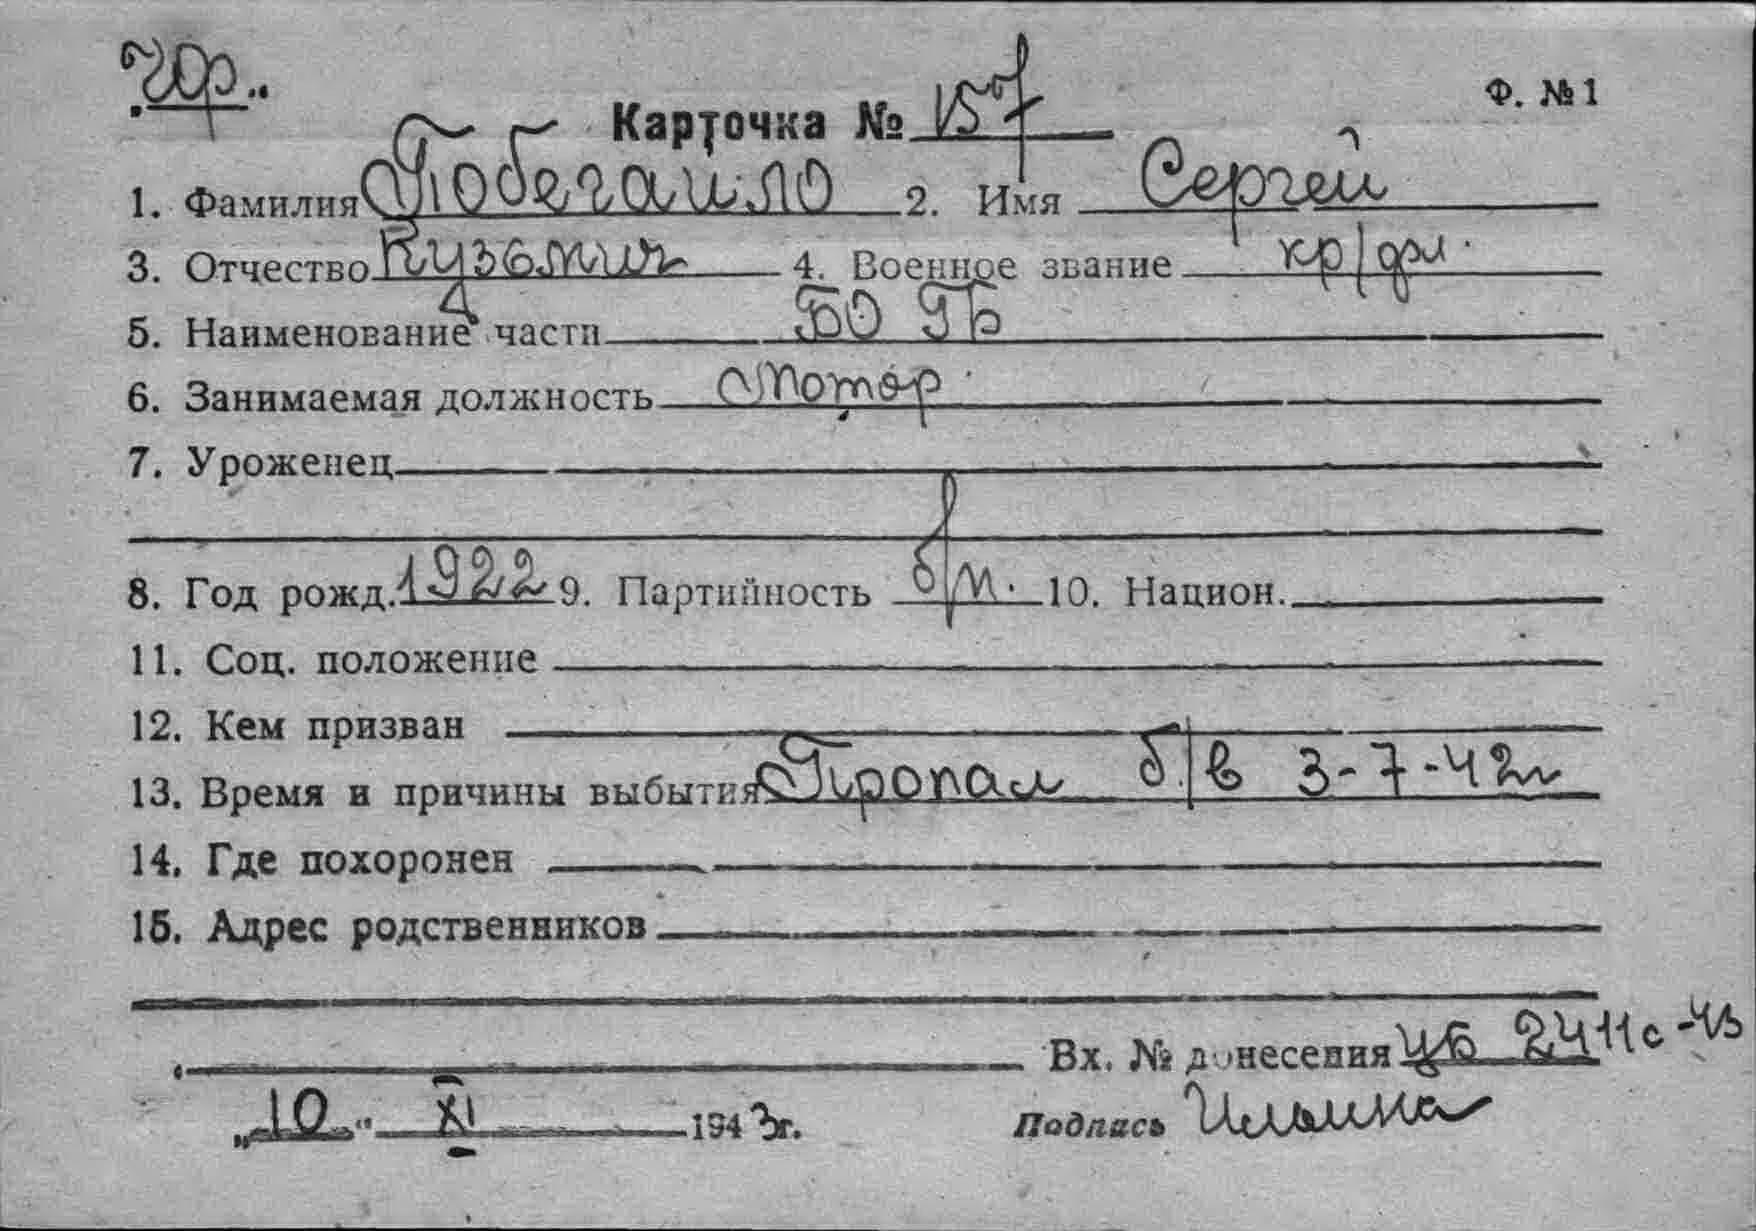 Ф. №1
Карточка №
1. Фамилия Побегайло 2. Имя Сергей
3. Отчество Кузьмич 4. Военное звание кр/фл.
5. Наименование части БО ГБ
6. Занимаемая должность мотор.
7. Уроженец
8. Год рожд. 1922 9. Партийность б/п. 10. Национ.
11. Соц. положение
12. Кем призван
13. Время и причины выбытия Пропал б/в 3-7-42г
14. Где похоронен
15. Адрес родственников
Вх. № донесения цб 2411с-43
„10“ XI 1943г. Подпись Ильина